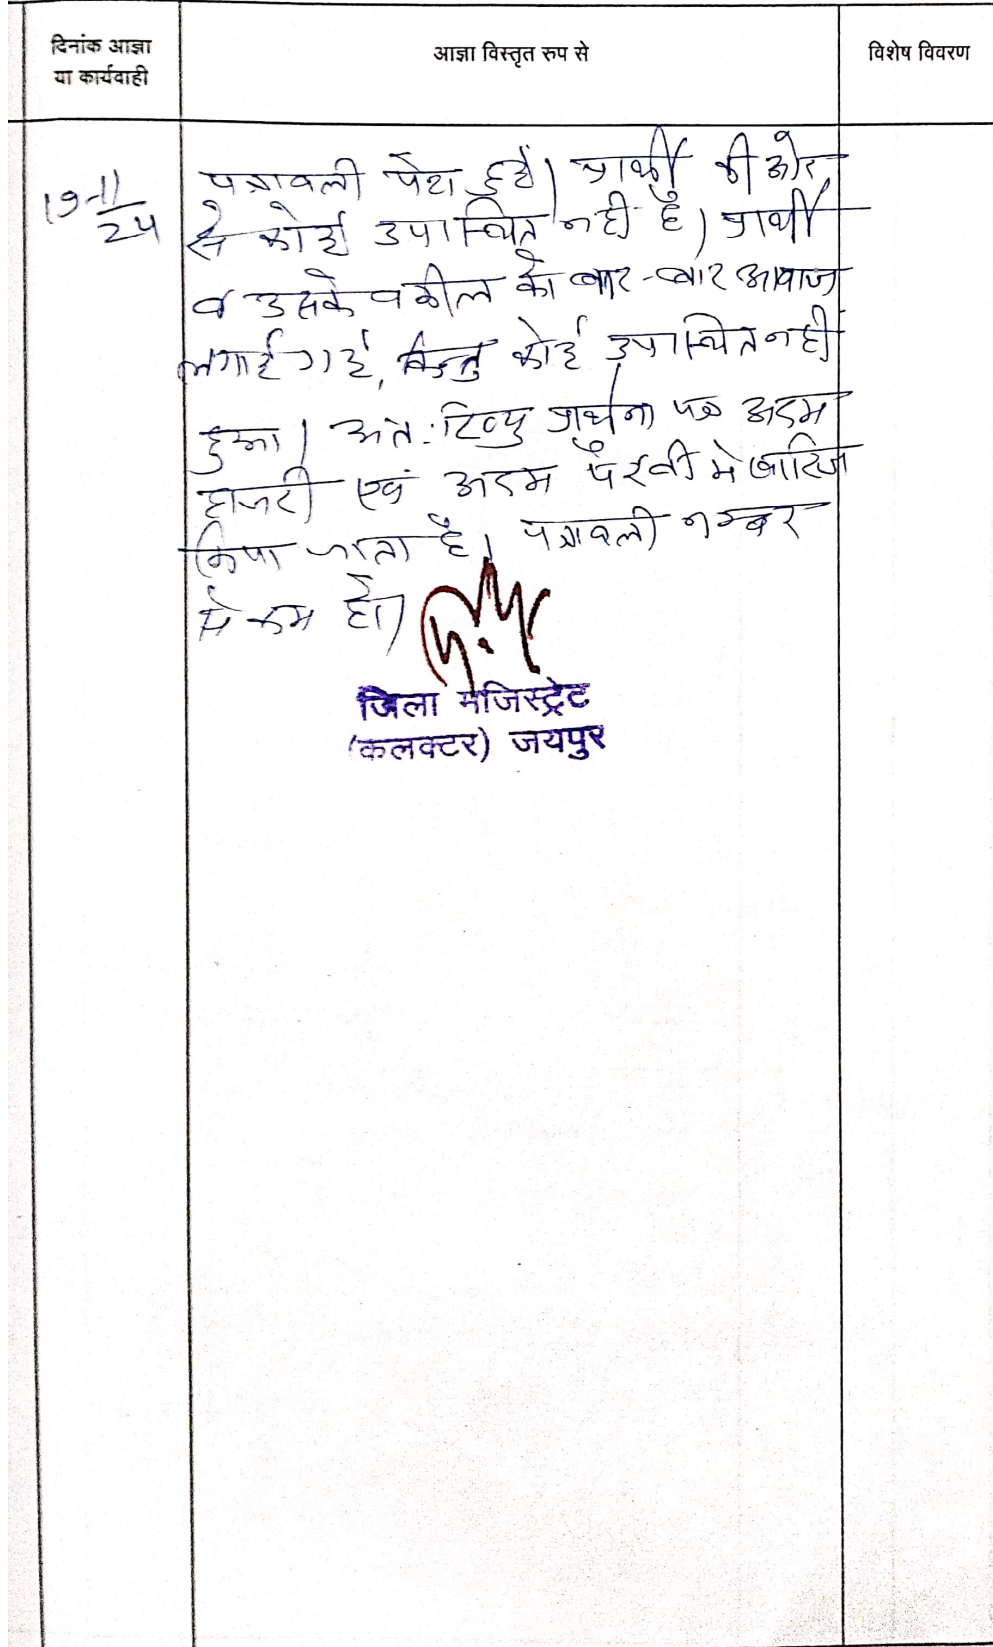 दिनांक आज्ञा
या कार्यवाही
आज्ञा विस्तृत रुप से
विशेष विवरण
19-11
24
पत्रावली पेश हुई। प्रार्थी की ओर
से कोई उपस्थित नही है। प्रार्थी
व उसके वकील को बार-बार आवाज
लगाई गई, किन्तु कोई उपस्थित नही
हुआ। अत: रिव्यु प्रार्थना पत्र अदम
हाजरी एवं अदम पैरवी मे खारिज
किया जाता है। पत्रावली नम्बर
से कम हो।
जिला मजिस्ट्रेट
(कलक्टर) जयपुर